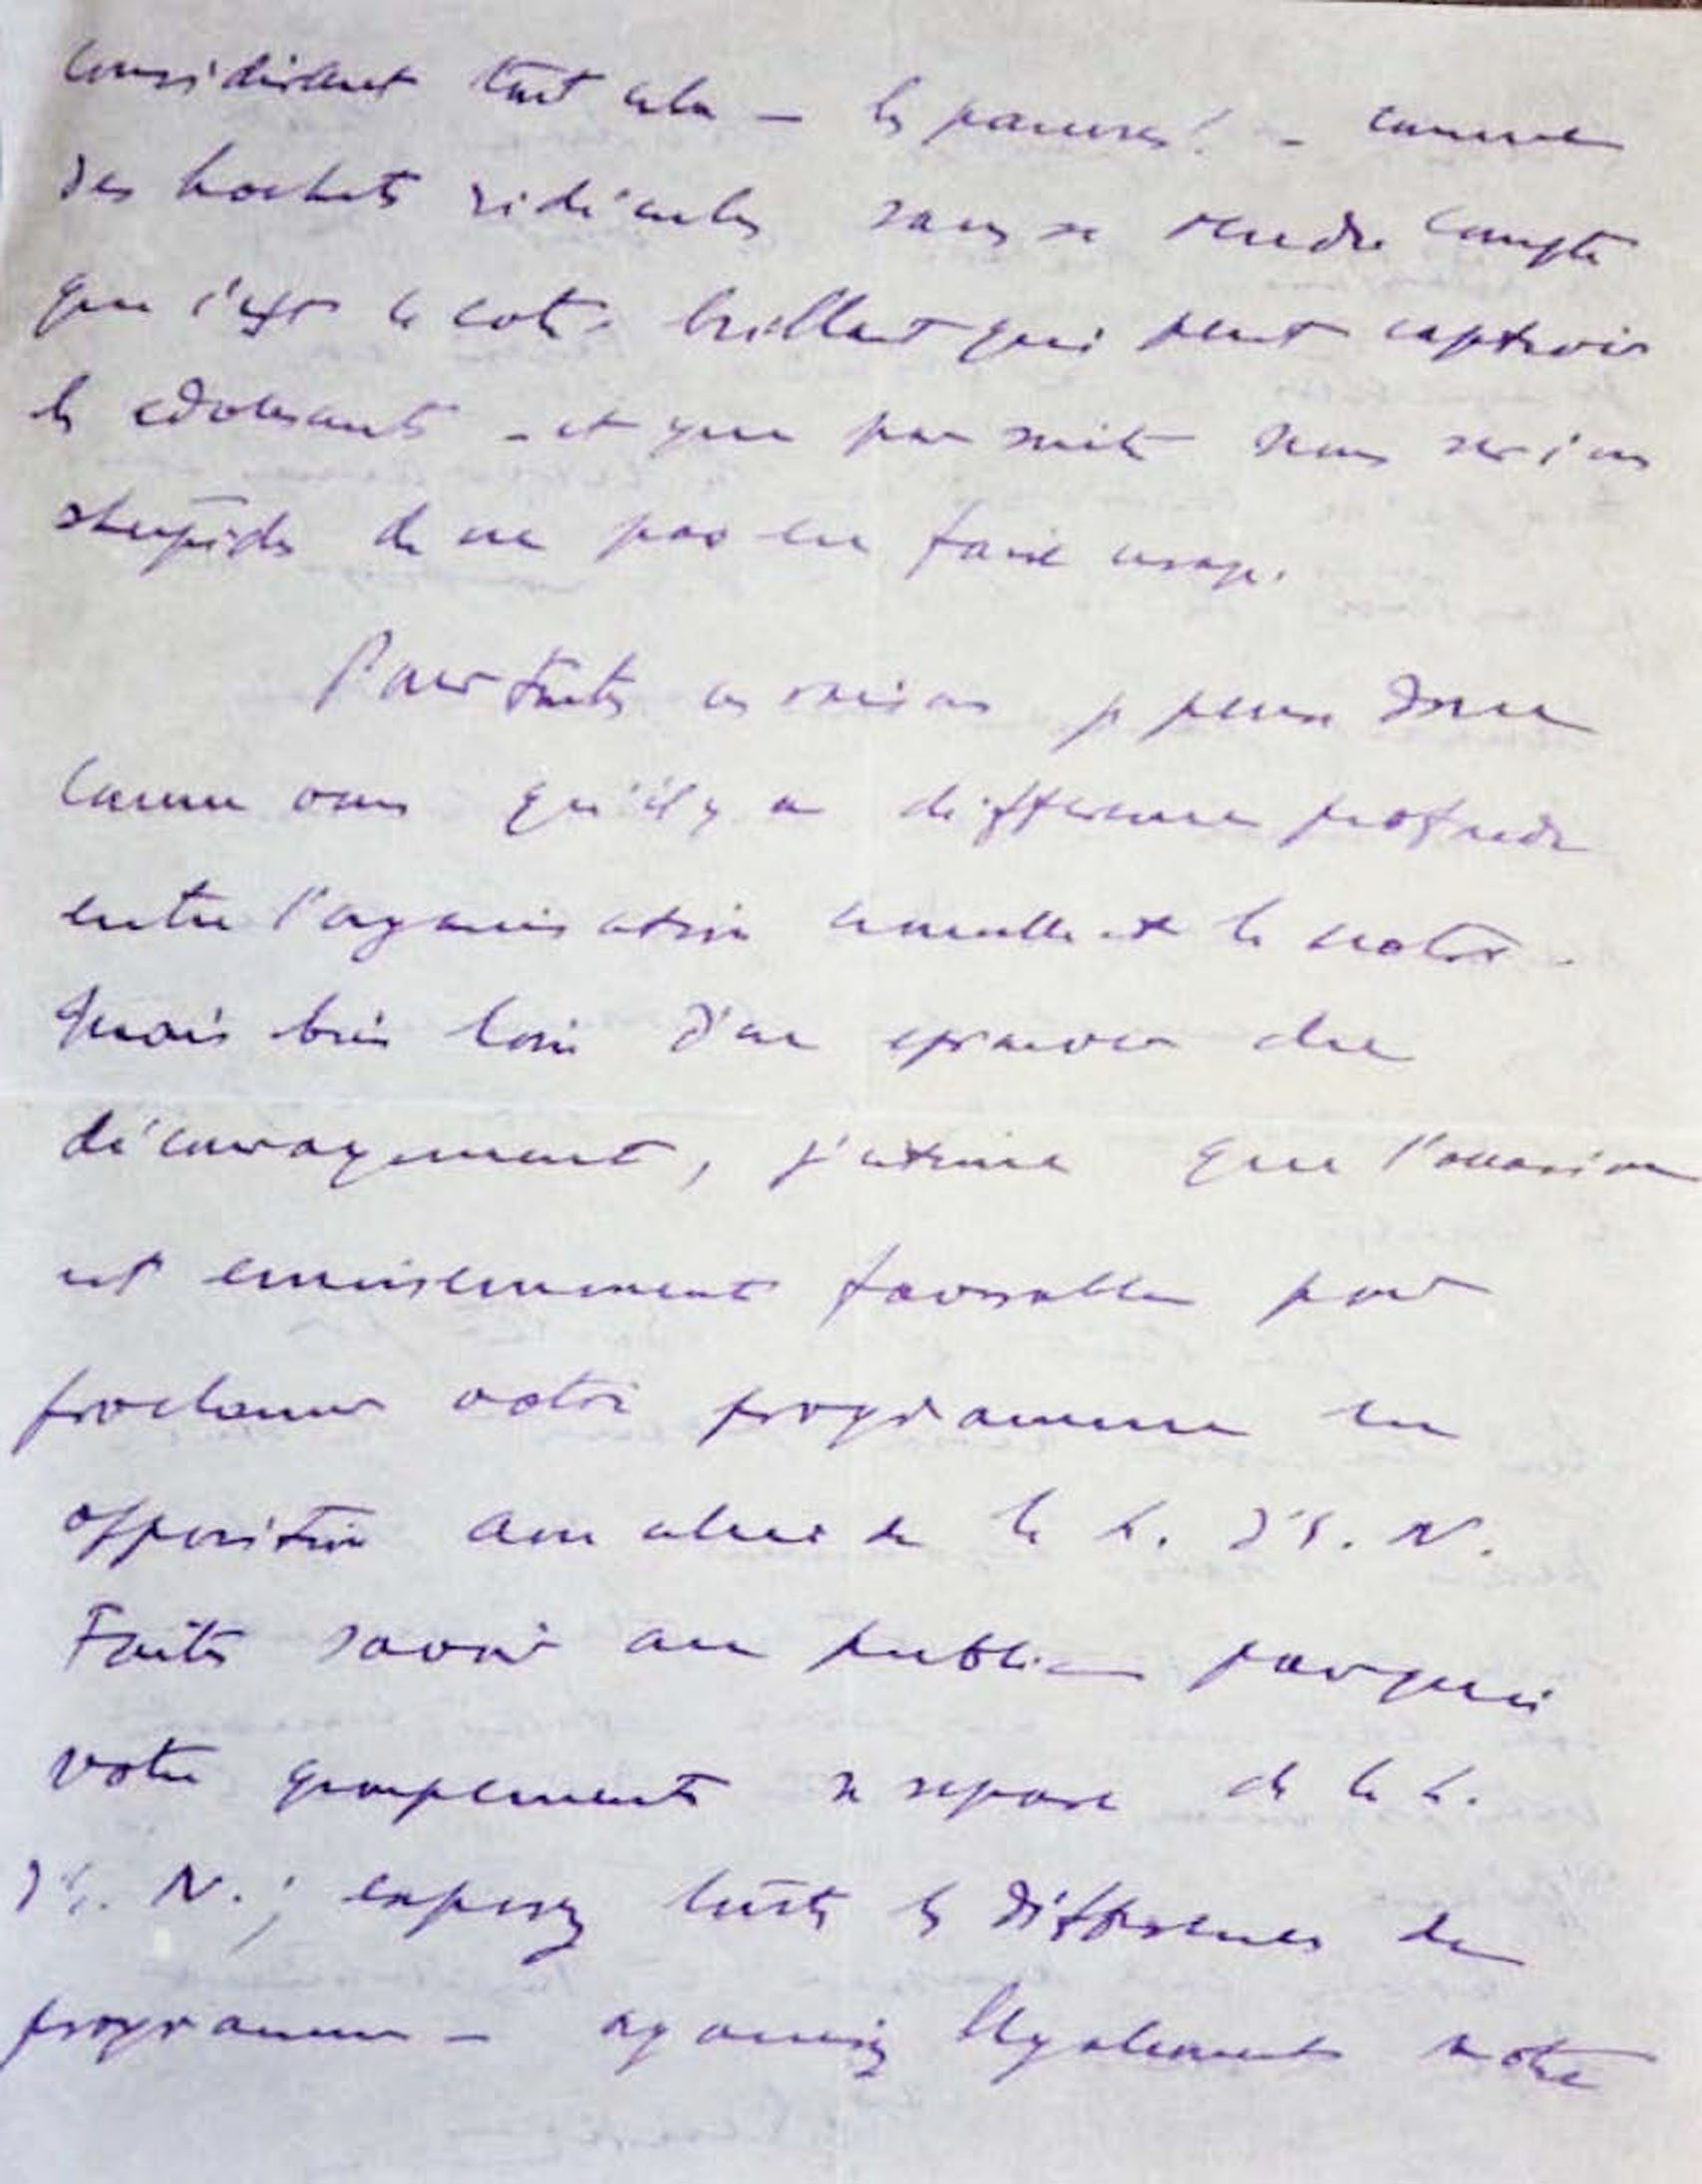 considérant tout cela – les pauvres! – comme
des hochets ridicules sans se rendre compte
que c'est le coté brillant qui peut captiver
les adolescents – et que par suite nous serions
stupides de ne pas en faire usage.
Pour toutes ces raisons je pense donc
comme vous qu'il y a difference profonde
entre l'organisation nouvelle et la notre –
Mais bien loin d'en eprouver du
découragement, j'estime que l'occasion
est eminemment favorable pour
proclamer votre programme en
opposition avec celui de la L. d'E. N.
Faites savoir au public pourquoi
votre groupements se separe de la L.
d'E. N.; exposez toutes les différences de
programme – organisez légalement notre